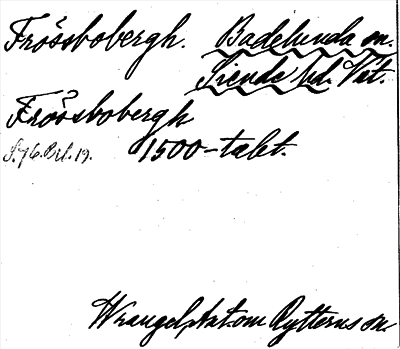 Frössbobergh. Badelunda sn.
Siende hd. Vst.
Frössbobergh
1500-talet.
Wrangel, Ant. om Rytterns sn.